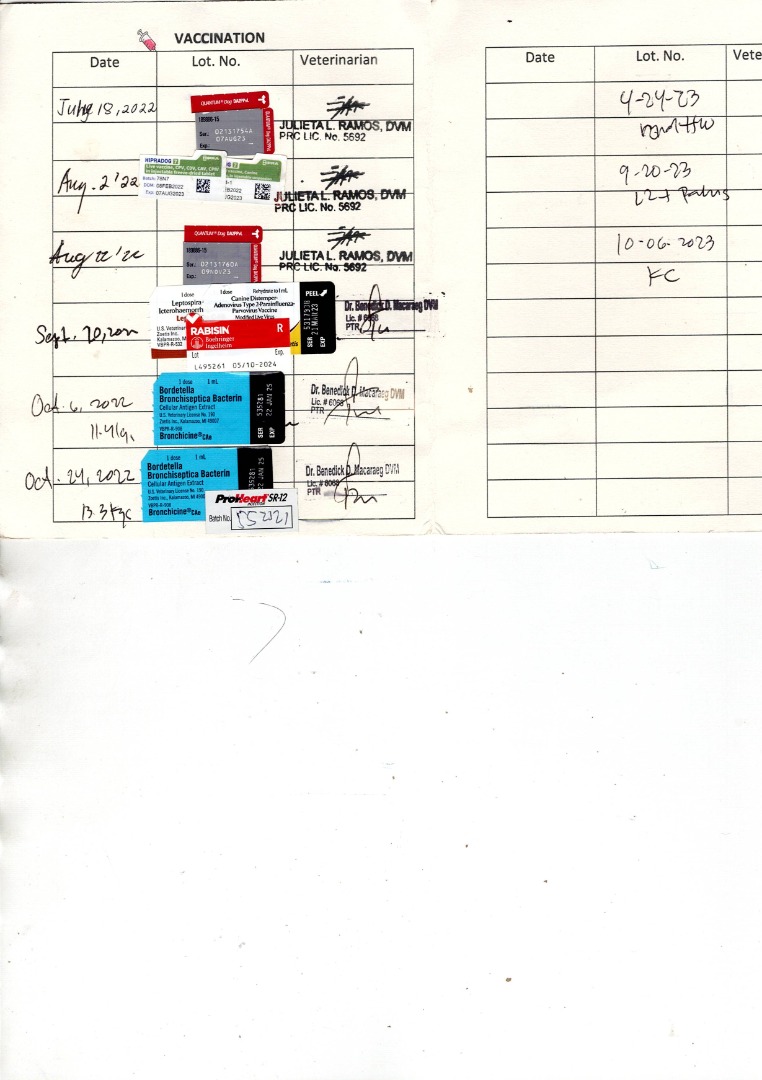 VACCINATION
Date Lot. No. Veterinarian
July 18, 2022
QUANTUM® Dog DA2PPvL
189886-15
Ser.: 02131754A
Exp.: 07AUG23
JULIETA L. RAMOS, DVM
PRC LIC. No. 5692
Aug. 2 '22
HIPRADOG 7
Batch: 78N7
DOM: 08FEB2022
Exp: 07AUG2023
JULIETA L. RAMOS, DVM
PRC LIC. No. 5692
Aug 22 '22
QUANTUM® Dog DA2PPvL
189886-15
Ser.: 02131760A
Exp.: 09NOV23
JULIETA L. RAMOS, DVM
PRC LIC. No. 5692
Sept. 20, 2022
1 dose
Leptospira-
Icterohaemorrh
U.S. Veterinar
Zoetis Inc.
Kalamazoo, M
VSPR-R-532
1 dose Rehydrate to 1 mL
Canine Distemper-
Adenovirus Type 2-Parainfluenza-
Parvovirus Vaccine
Modified Live Virus
PEEL
SER 531793B
EXP 21 MAR 23
RABISIN R
Boehringer
Ingelheim
Lot Exp.
L495261 05/10-2024
Dr. Benedick D. Macaraeg DVM
Lic. # 6068
PTR
Oct. 6, 2022
11.4kg.
1 dose 1 mL
Bordetella
Bronchiseptica Bacterin
Cellular Antigen Extract
U.S. Veterinary License No. 190
Zoetis Inc., Kalamazoo, MI 49007
VSPR-R-908
Bronchicine® CAe
SER 535281
EXP 22 JAN 25
Dr. Benedick D. Macaraeg DVM
Lic. # 6068
PTR
Oct. 24, 2022
13.3kgs
1 dose 1 mL
Bordetella
Bronchiseptica Bacterin
Cellular Antigen Extract
U.S. Veterinary License No. 190
Zoetis Inc., Kalamazoo, MI 490
VSPR-R-908
Bronchicine® CAe
535281
22 JAN 25
ProHeart SR-12
Batch No. 552321
Dr. Benedick D. Macaraeg DVM
Lic. # 6068
PTR
Date Lot. No. Vete
4-24-23
9-20-23
10-06-2023
KC